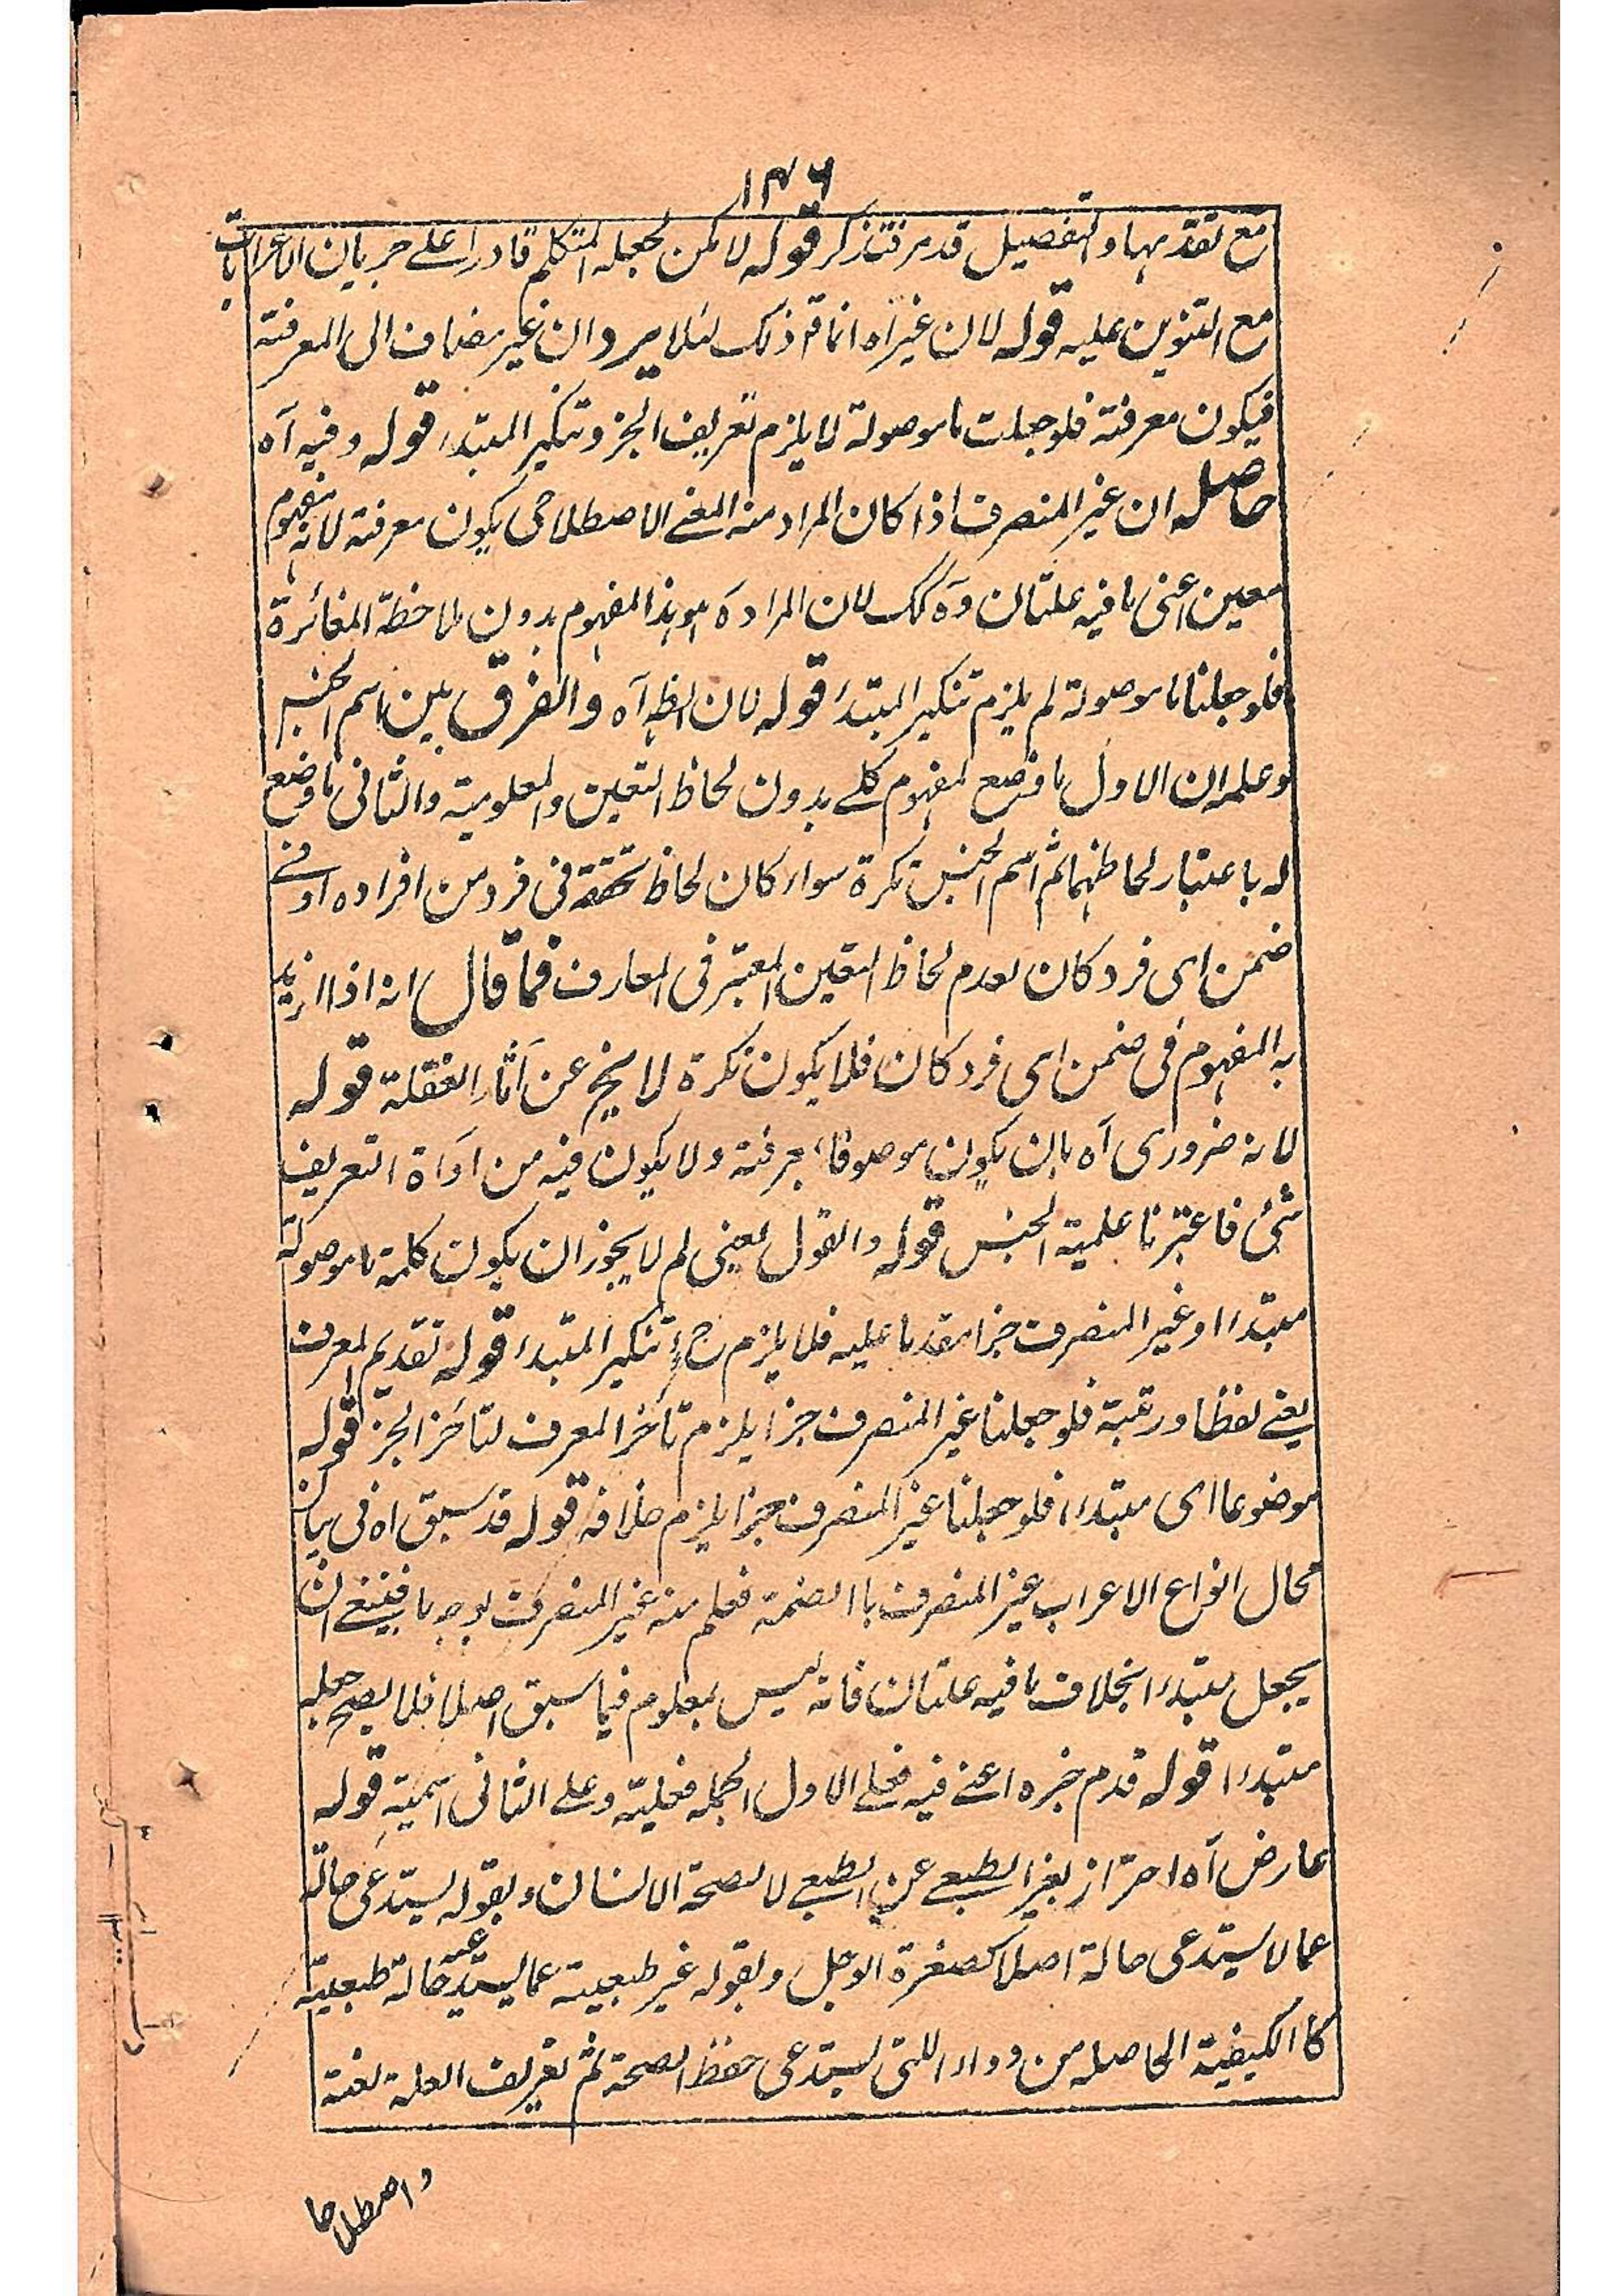 ۱۴۶
مع تقدمها والتفصيل قد مر فتذكر قوله لا يمكن لجعله المتكلم قادرا على جريان الاعرابات
مع التنوين عليه قوله لان غير آه انما ذلك لئلا يرد ان غير مضاف الى المعرفة
فيكون معرفة فلو جعلت ما موصولة لا يلزم تعريف الخبر وتنكير المبتدء قوله وفيه آه
حاصله ان غير المنصرف اذا كان المراد منه المعنے الاصطلاحى يكون معرفة لانه مفهوم
معين اعنى ما فيه علتان وه كك لان المراد ه هو هذا المفهوم بدون ملاحظة المغائرة
فلو جعلنا ما موصولة لم يلزم تنكير المبتدء قوله لان الظ آه والفرق بين اسم الجنس
وعلمه ان الاول ما وضع لمفهوم كلے بدون لحاظ التعين والمعلومية والثانى ما وضع
له باعتبار لحاظهما ثم اسم الجنس نكرة سواء كان لحاظ تحققه فى فرد من افراده او فے
ضمن اى فرد كان لعدم لحاظ التعين المعتبر فى المعارف فما قال انه اذا اريد
به المفهوم فى ضمن اى فرد كان فلا يكون نكرة لا يخ عن آثار الغفلة قوله
لانه ضرورى آه بان يكون موصوفا بمعرفة ولا يكون فيه من اداة التعريف
شئ فاعتبرنا علمية الجنس قوله والقول يعنى لم لا يجوز ان يكون كلمة ما موصولة
مبتدءا وغير المنصرف خبرا مقدما عليه فلا يلزم ح تنكير المبتدء قوله تقديم المعرف
يعنے لفظا ورتبة فلو جعلنا غير المنصرف خبرا يلزم تاخر المعرف لتاخر الخبر قوله
موضوعا اى مبتدءا فلو جعلنا غير المنصرف خبرا يلزم خلافه قوله قد سبق اه فى بيان
محال انواع الاعراب غير المنصرف باالضمة فعلم منه غير المنصرف بوجه ما فينبغے ان
يجعل مبتدءا بخلاف ما فيه علتان فانه ليس بمعلوم فيما سبق اصلا فلا يصح جعله
مبتدءا قوله قدم خبره اعنے فيه فعلے الاول الجملة فعلية وعلے الثانى اسمية قوله
عارض آه احتراز بغير الطبعے عن الطبعے لا لصحة الانسان وبقوله يستدعى حالة
عما لا يستدعى حالة اصلا كصفرة الوجل وبقوله غير طبعية عما يستدعى حالة طبعية
كالكيفية الحاصلة من دواء اللتى يستدعى حفظ الصحة ثم تعريف العلة لغة
واصطلاحا